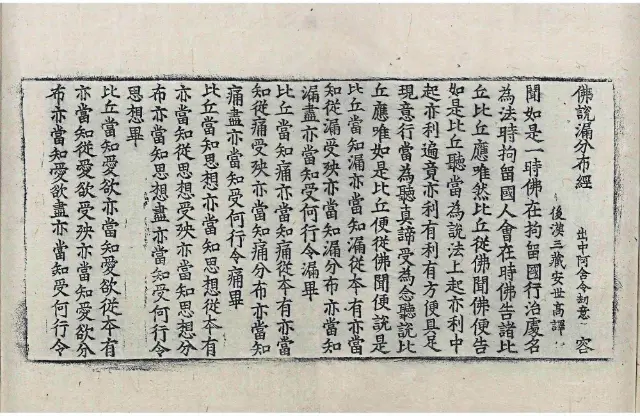 佛說漏分布經 出中阿含令劫意 容
後漢三藏安世高譯
聞如是一時佛在拘留國行治處名
為法時拘留國人會在時佛告諸比
丘比丘應唯然比丘從佛聞便告
如是比丘聽當為說法上起亦利中
起亦利遍竟亦利有利有方便具足
現意行當為聽真諦受為念聽說比
丘應唯如是比丘便從佛聞便說是
比丘當知漏亦當知漏從本有亦當
知從漏受殃亦當知漏分布亦當知
漏盡亦當知受何行令漏畢
比丘當知痛亦當知痛從本有亦當
知從痛受殃亦當知痛分布亦當知
痛盡亦當知受何行令痛畢
比丘當知思想亦當知思想從本有
亦當知從思想受殃亦當知思想分
布亦當知思想盡亦當知受何行令
思想畢
比丘當知愛欲亦當知愛欲從本有
亦當知從愛欲受殃亦當知愛欲分
布亦當知愛欲盡亦當知受何行令